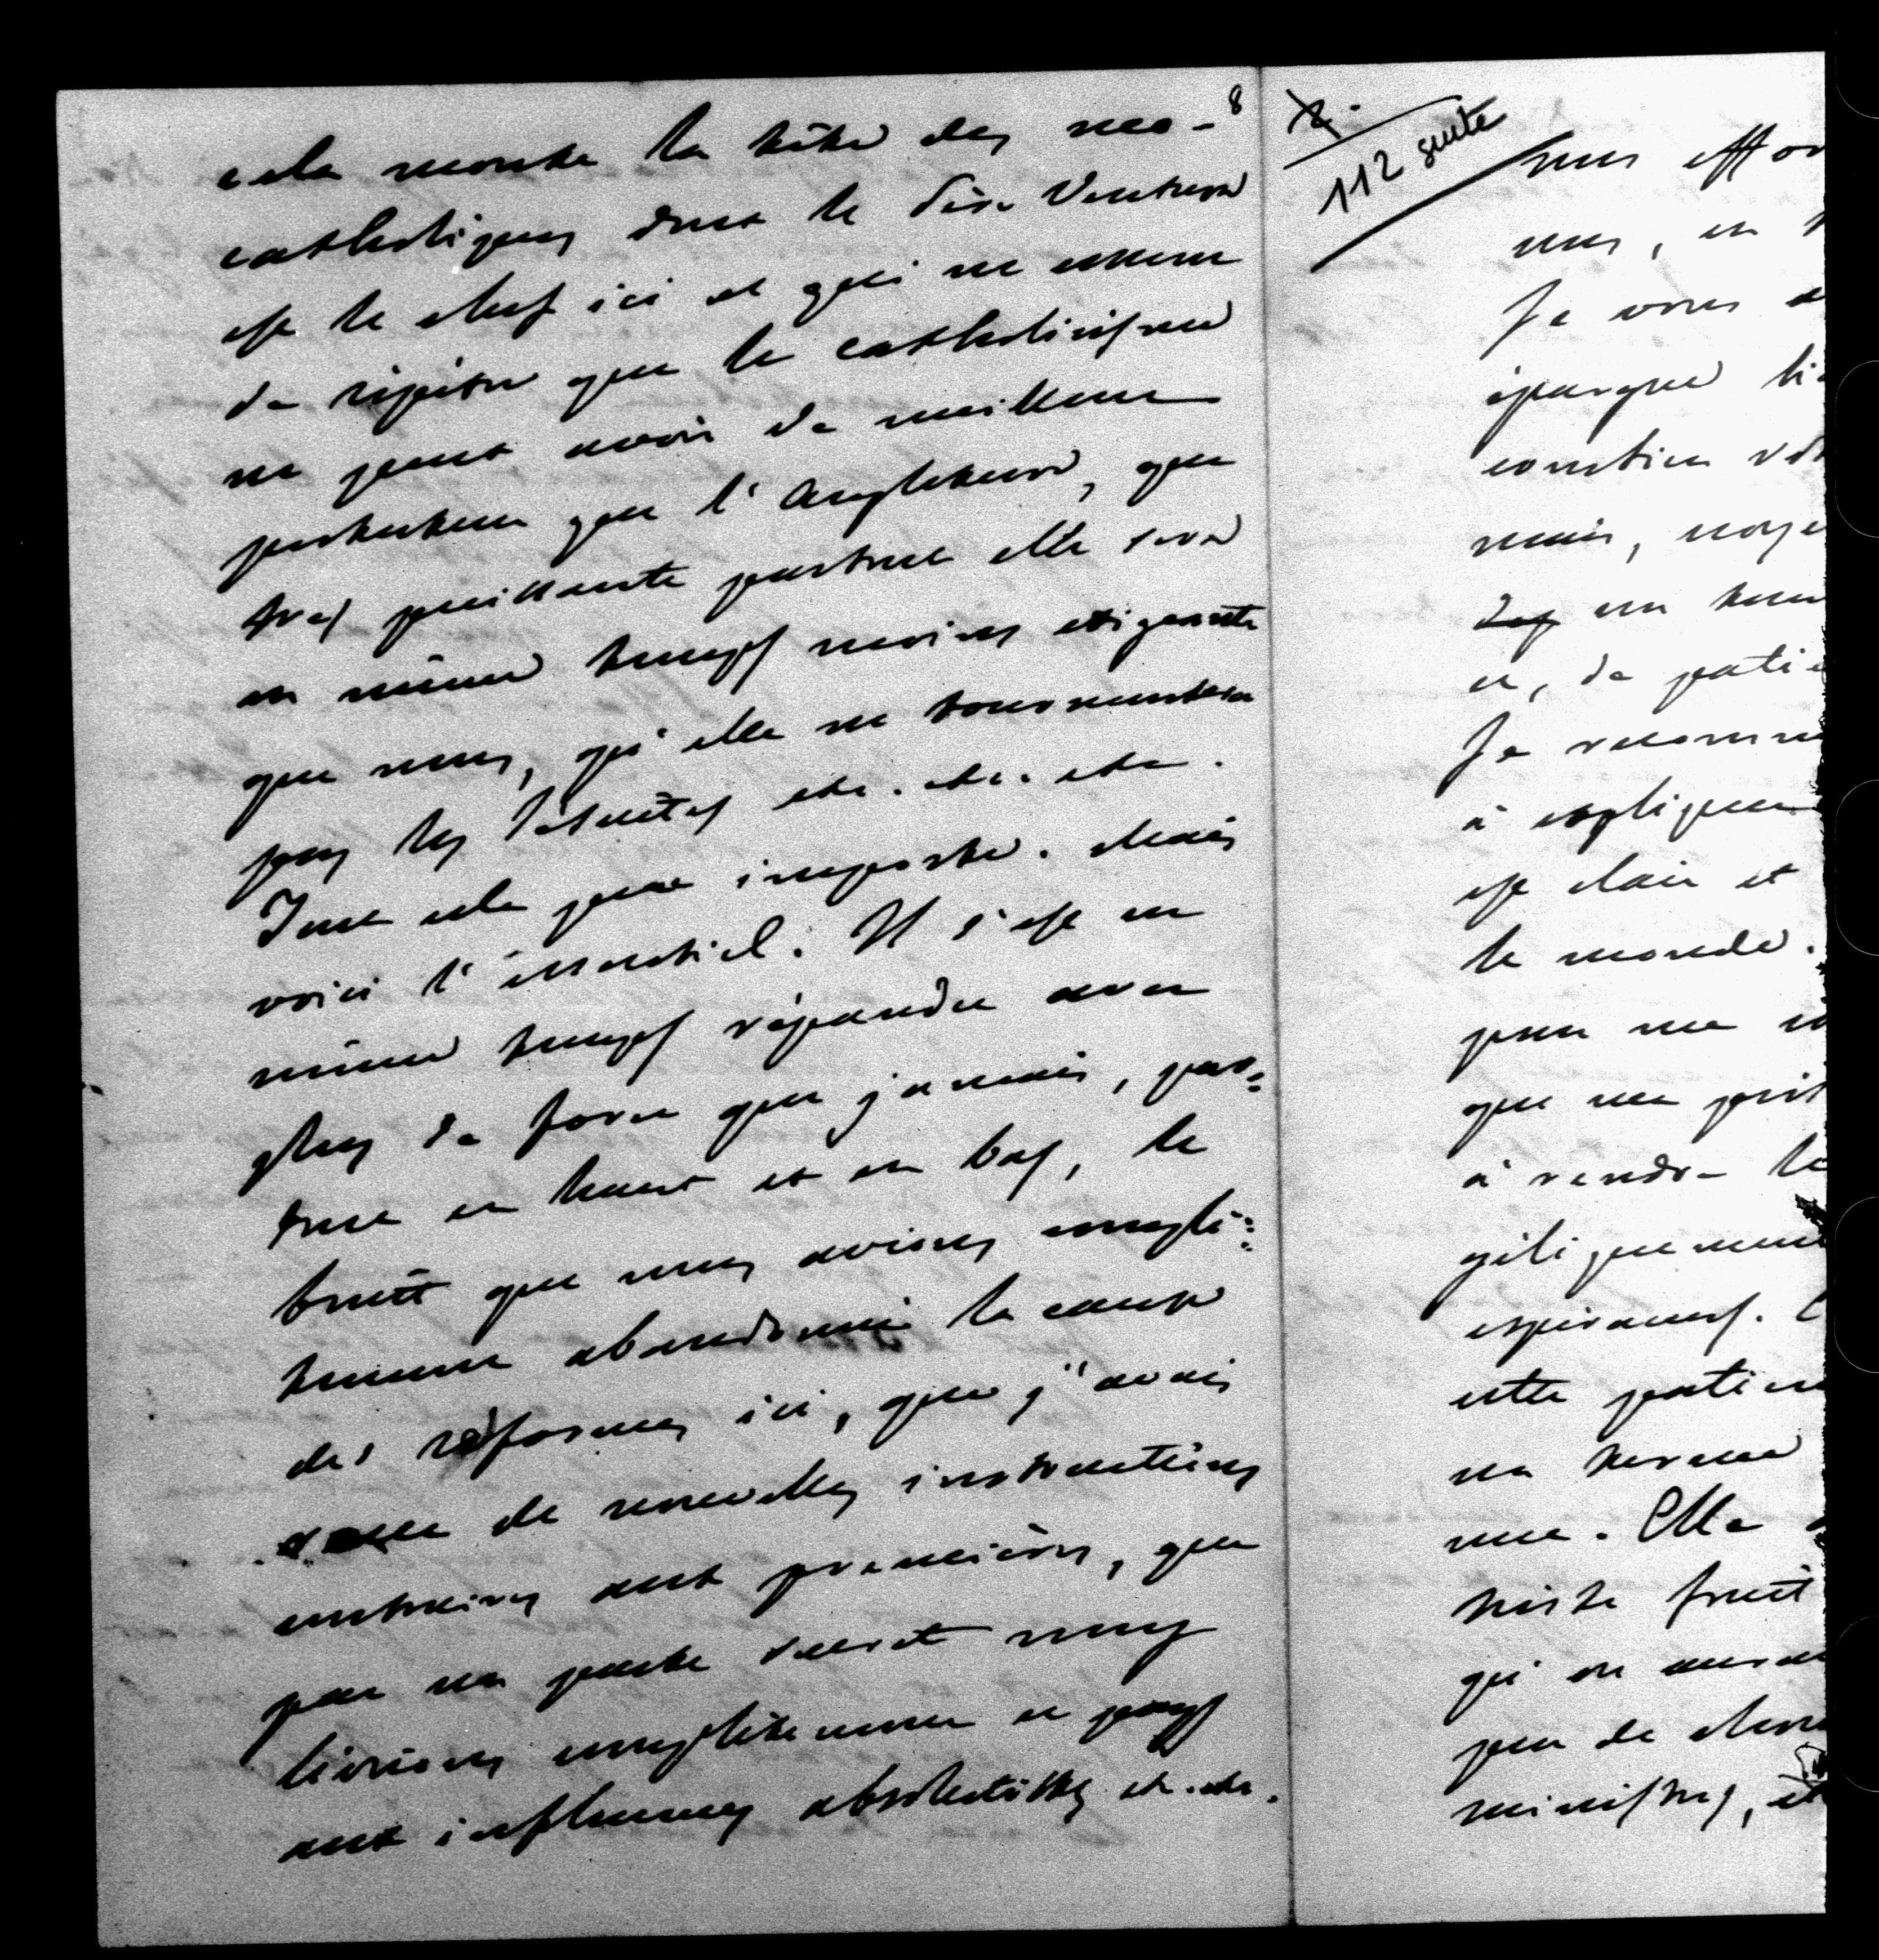 8
cela monte la tête des néo-
catholiques dont le Père Ventura
est le chef ici et qui ne cesse
de répéter que le catholicisme
ne peut avoir de meilleur
protecteur que l'Angleterre, que
très puissante partout elle sera
en même temps moins exigeante
que nous, qu'elle ne tourmentera
pas les Jésuites etc. etc. etc.
Tout cela peu importe. Mais
voici l'essentiel. Il s'est en
même temps répandu avec
plus de force que jamais, par=
tout en haut et en bas, le
bruit que nous avions complè=
tement abandonné la cause
des réformes ici, que j'avais
de nouvelles instructions
contraires aux premières, que
par un pacte secret nous
livrions complètement ce pays
aux influences absolutistes etc. etc.
8.
112 suite
nous effor
nous, en
Je vous
épargne
soutien
mais,
des un
et, de patie
Je recomm
à expliquer
est clair et
le monde.
pour me
que me
à rendre le
espérances.
cette patien
un terme
me. Elle
triste fruit
qu'on aurai
peu de
ministres, et